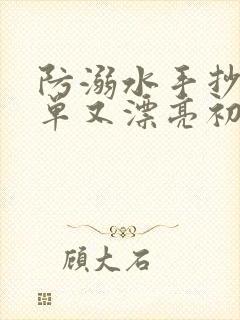 防溺水手抄
单又漂亮初
顾大石